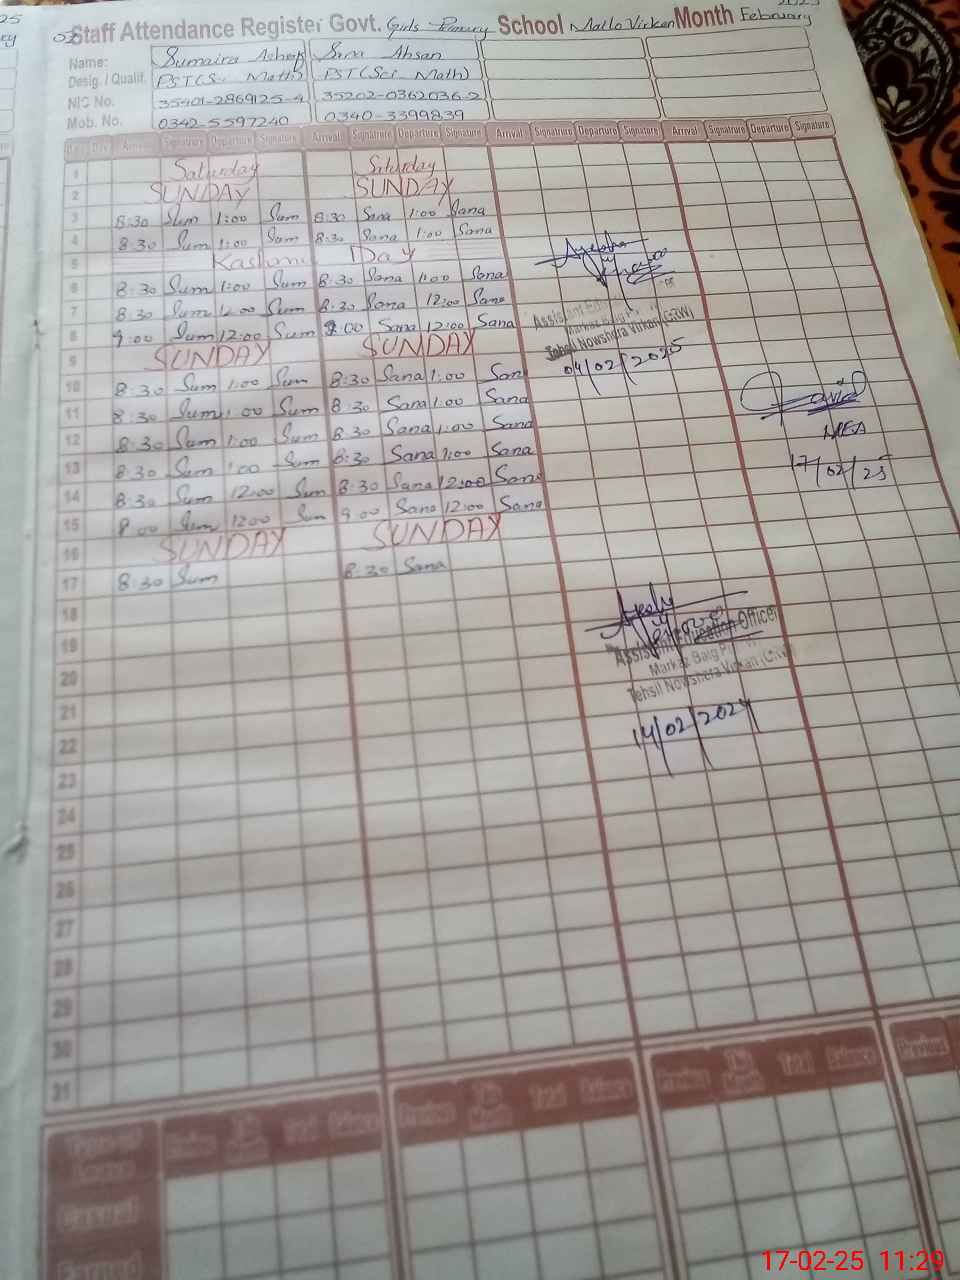 25
2025
Staff Attendance Register Govt. Girls Primary School Mallo Virkan Month February
Name: Sumaira Ashraf Sana Ahsan
Desig. / Qualif. PST (Sci Math) PST (Sci Math)
NIC No. 35401-2869125-4 35202-0362036-2
Mob. No. 0342-5597240 0340-3399839
Date Day Arrival Signature Departure Signature Arrival Signature Departure Signature Arrival Signature Departure Signature Arrival Signature Departure Signature
1 Saturday Saturday
2 SUNDAY SUNDAY
3 8:30 Sum 1:00 Sum 8:30 Sana 1:00 Sana
4 8:30 Sum 1:00 Sum 8:30 Sana 1:00 Sana
5 Kashmir Day
6 8:30 Sum 1:00 Sum 8:30 Sana 1:00 Sana
7 8:30 Sum 12:00 Sum 8:30 Sana 12:00 Sana
8 9:00 Sum 12:00 Sum 9:00 Sana 12:00 Sana
9 SUNDAY SUNDAY
10 8:30 Sum 1:00 Sum 8:30 Sana 1:00 Sana
11 8:30 Sum 1:00 Sum 8:30 Sana 1:00 Sana
12 8:30 Sum 1:00 Sum 8:30 Sana 1:00 Sana
13 8:30 Sum 1:00 Sum 8:30 Sana 1:00 Sana
14 8:30 Sum 12:00 Sum 8:30 Sana 12:00 Sana
15 9:00 Sum 12:00 Sum 9:00 Sana 12:00 Sana
16 SUNDAY SUNDAY
17 8:30 Sum 8:30 Sana
18
19
20
21
22
23
24
25
26
27
28
29
30
31
Assistant
Markaz Baig
Tehsil Nowshera Virkan (GRW)
04/02/2025
MEA
17/02/25
Assistant Education Officer
Markaz Baig
Tehsil Nowshera Virkan (GRW)
14/02/2024
Type of Leave Previous This Month Total Balance Previous This Month Total Balance Previous This Month Total Balance Previous
17-02-25 11:29